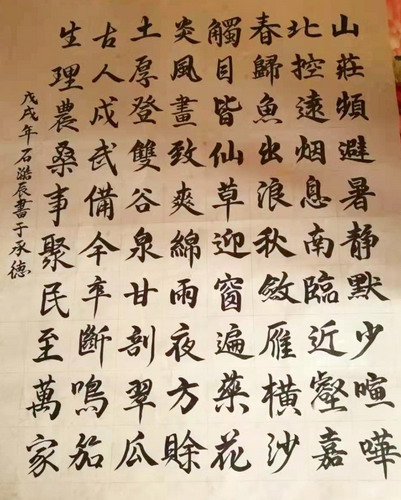 山莊頻避暑靜默少喧嘩
北控遠烟息南臨近壑嘉
春歸魚出浪秋斂雁橫沙
觸目皆仙草迎窗遍藥花
炎風畫致爽綿雨夜方賒
土厚登雙谷泉甘剖翠瓜
古人戍武備今卒斷鳴笳
生理農桑事聚民至萬家
戊戌年石澔辰書于承德